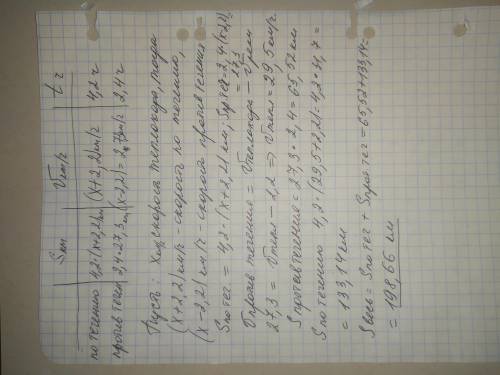 Sкм | Vкм/ч | t ч
по течению | 4,2·(x+2,2)км | (x+2,2)км/ч | 4,2ч
против течен | 2,4·27,3км | (x-2,2)=27,3км/ч | 2,4ч
Пусть: x км/ч скорость теплохода, тогда
(x+2,2)км/ч - скорость по течению,
(x-2,2)км/ч - скорость против течения
Sпо теч = 4,2·(x+2,2)км; Sпр теч = 2,4(x-2,2)
= 27,3
Vпротив течения = Vтеплохода - Vреки
27,3 = Vтепл - 2,2 => Vтепл = 29,5км/ч
Sпротив течения = 27,3·2,4 = 65,52км
Sпо течению 4,2·(29,5+2,2) = 4,2·31,7 =
= 133,14км
Sвесь = Sпо теч + Sпро теч = 65,52+133,14=
= 198,66 км